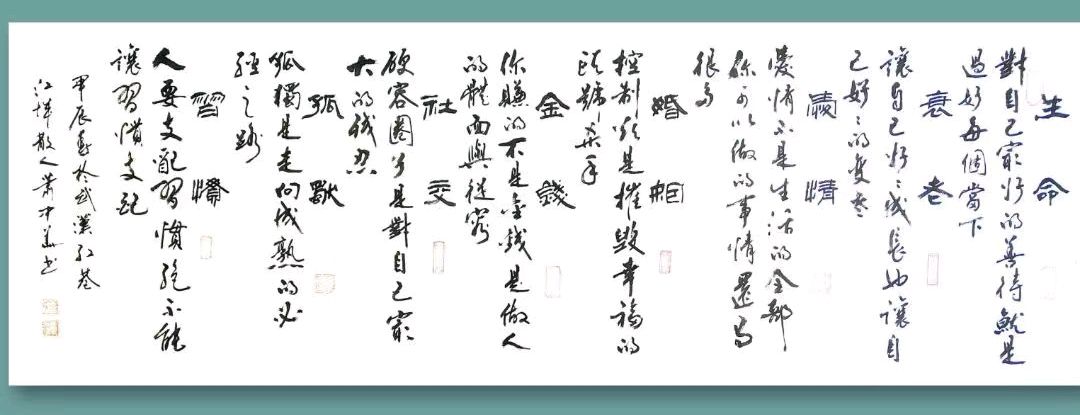 生命
對自己最好的善待就是
過好每個當下
衰老
讓自己好好成長也讓自
己好好的變老
愛情
愛情不是生活的全部
你可以做的事情還有
很多
婚姻
控制欲是摧毀幸福的
頭號杀手
金錢
你賺的不是金錢是做人
的體面與從容
社交
硬容圈子是對自己最
大的残忍
孤獸
孤獨是走向成熟的必
經之路
習慣
人要支配習慣絕不能
讓習慣支配
甲辰夏於武漢紅巷
江城散人蕭才书